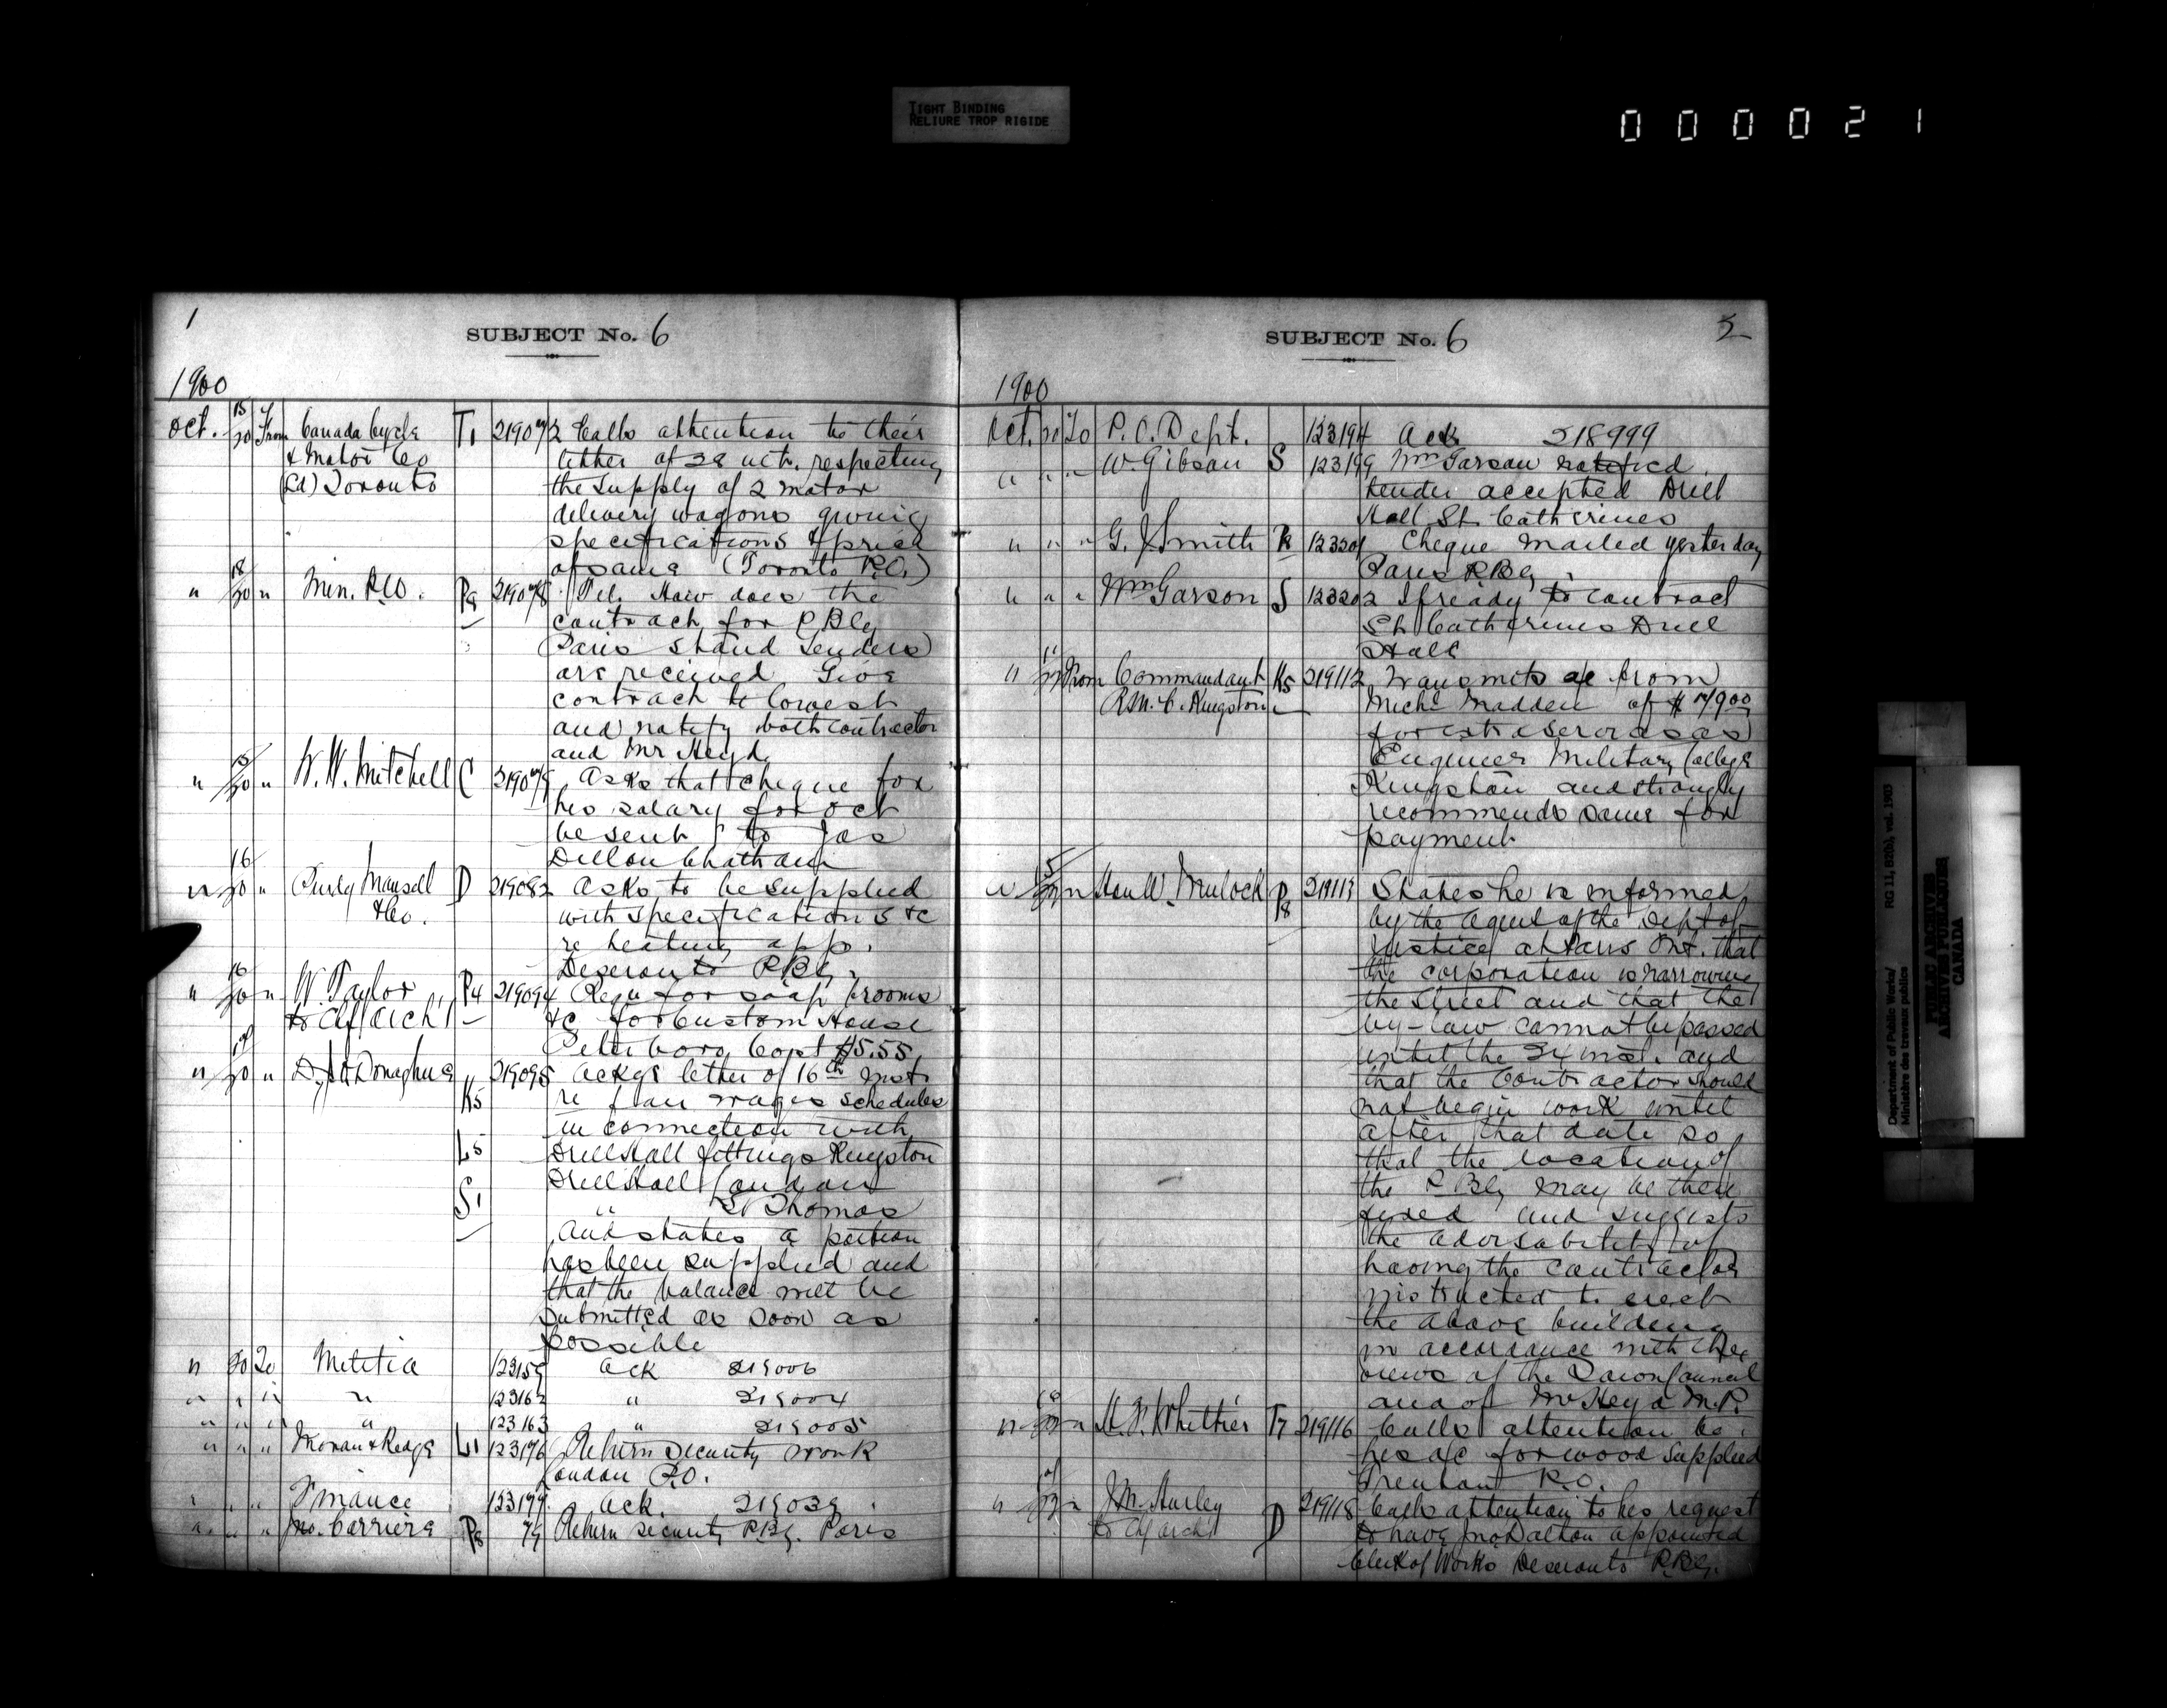 TIGHT BINDING
RELIURE TROP RIGIDE
000021
1
SUBJECT No. 6
1900
Oct. 15/20 From Canada Cycle T1 219072 Calls attention to their
& Motor Co letter of 28 ult. respecting
(Ld) Toronto the supply of 2 motor
delivery wagons giving
specifications & price
of same (Toronto P.O.)
" 18/20 " Min. P.W. P8 219078 Tel. How does the
contract for P Blg
Paris stand Tenders
are received Give
contract to lowest
and notify both contractor
and Mr Heyd
" 15/20 " W. W. Mitchell C 219079 Asks that cheque for
his salary for Oct
be sent to Jas
Dillon Chatham
" 16/20 " Purdy Mansell D 219082 Asks to be supplied
& Co. with specifications &c
re heating app.
Deseronto P.Blg.
" 16/20 " W. Taylor P4 219094 Requ for soap brooms
to Chf Arch't &c for Custom House
Peterboro Cost $5.55
" 19/20 " D. J. O'Donoghue 219095 Ackgs letter of 16th inst
K5 re fair wages schedules
in connection with
L5 Drill Hall fittings Kingston
Drill Hall London
S1 " St Thomas
and states a portion
has been supplied and
that the balance will be
submitted as soon as
possible
" 20 To Militia 123159 Ack 219006
" " " " 123162 " 219004
" " " " 123163 " 219005
" " " L1 123176 Return security work
London P.O.
" " " Finance 123177 Ack. 219039
" " " Jno. Carriere P8 79 Return security P.Blg. Paris
SUBJECT No. 6
2
1900
Oct. 20 To P.O. Dept. 123194 Ack 218999
" " " W. Gibson S 123199 Wm Garson notified
tender accepted Drill
Hall St. Catherines
" " " G. J. Smith P8 123201 Cheque mailed yesterday
Paris P.Blg.
" " " Wm Garson S 123202 If ready to contract
St. Catherines Drill
Hall
" From Commandant K5 219112 Transmits a/c from
R.M.C. Kingston Michl Madden of $79.00
for extra services as
Engineer Military College
Kingston and strongly
recommends same for
payment
" " Hon W. Mulock P8 219113 States he is informed
by the agent of the Dept of
Justice at Paris Ont. that
the corporation is narrowing
the street and that the
by-law cannot be passed
until the 24 inst. and
that the Contractor should
not begin work until
after that date so
that the location of
the P Blg may be then
fixed and suggests
the advisability of
having the contractor
instructed to erect
the above building
in accordance with the
views of the Town Council
and of Mr Heyd M.P.
" " A. F. Whittier T7 219116 Calls attention to
his a/c for wood supplied
Trenton P.O.
" " J. M. Hurley D 219118 Calls attention to his request
to Chf Arch't to have Jno Dalton appointed
Clerk of Works Deseronto P.Blg.
Department of Public Works/
Ministère des travaux publics
RG 11, B2(b), vol. 1903
PUBLIC ARCHIVES
ARCHIVES PUBLIQUES
CANADA